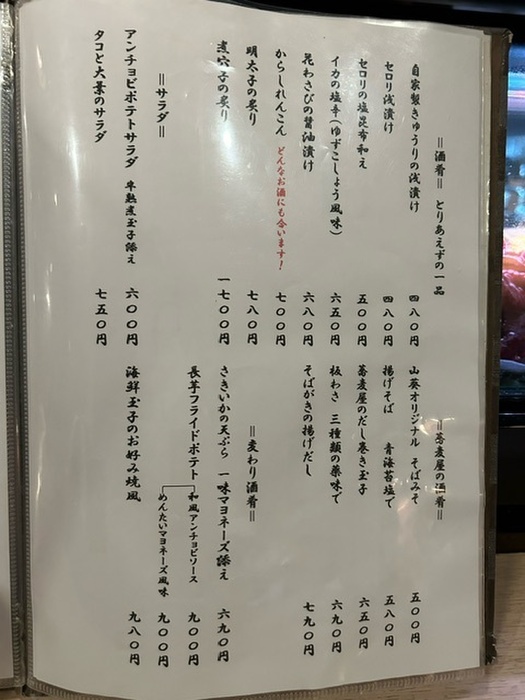 ＝酒肴＝ とりあえずの一品
自家製きゅうりの浅漬け 四八〇円
セロリ浅漬け 四八〇円
セロリの塩昆布和え 五〇〇円
イカの塩辛（ゆずこしょう風味） 六五〇円
花わさびの醤油漬け 六八〇円
からしれんこん どんなお酒にも合います！ 七〇〇円
明太子の炙り 七八〇円
煮穴子の炙り 一七〇〇円
＝サラダ＝
アンチョビポテトサラダ 半熟煮玉子添え 六〇〇円
タコと大葉のサラダ 七五〇円
＝蕎麦屋の酒肴＝
山葵オリジナル そばみそ 五〇〇円
揚げそば 青海苔塩で 五八〇円
蕎麦屋のだし巻き玉子 六五〇円
板わさ 三種類の薬味で 六九〇円
そばがきの揚げだし 七九〇円
＝変わり酒肴＝
さきいかの天ぷら 一味マヨネーズ添え 六九〇円
長芋フライドポテト 和風アンチョビソース 九〇〇円
めんたいマヨネーズ風味 九〇〇円
海鮮玉子のお好み焼風 九八〇円